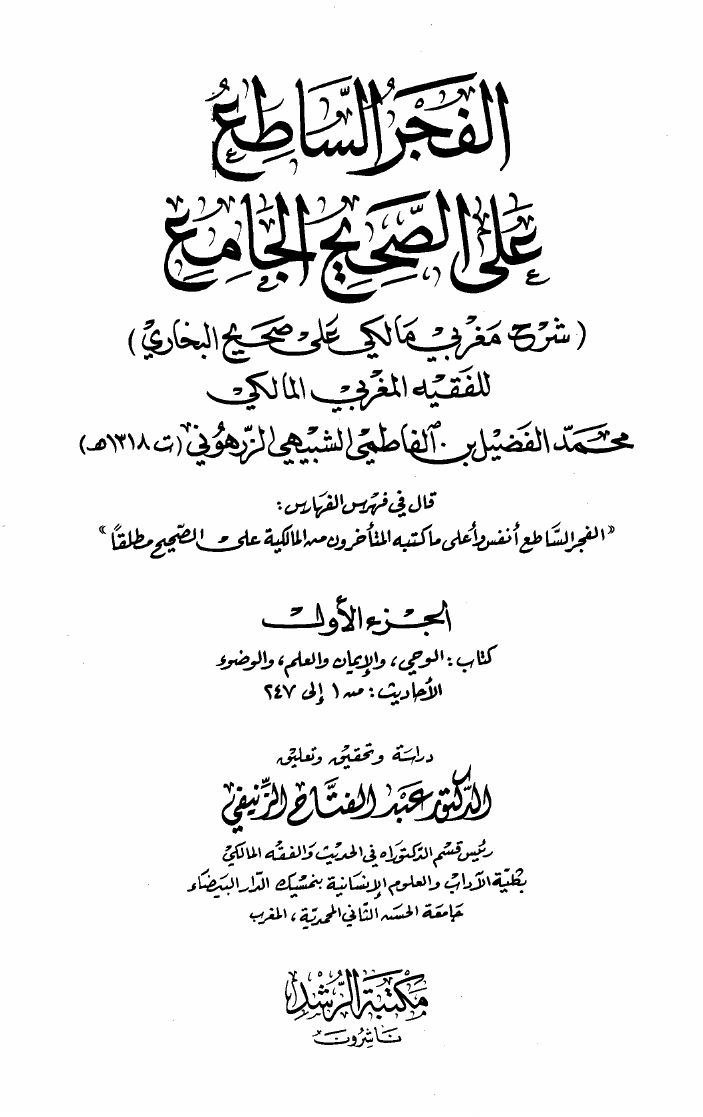 الفَجْرُ السَّاطِعُ
عَلَى الصَّحِيحِ الجَامِعِ
(شرح مغربي مالكي على صحيح البخاري)
للفقيه المغربي المالكي
محمد الفضيل بن الفاطمي الشبيهي الزرهوني (ت ١٣١٨هـ)
قال في فهرس الفهارس:
«الفجر الساطع أنفس وأعلى ما كتبه المتأخرون من المالكية على الصحيح مطلقاً»
الجزء الأول
كتاب: الوحي، والإيمان والعلم، والوضوء
الأحاديث: من ١ إلى ٢٤٧
دراسة وتحقيق وتعليق
الدكتور عبد الفتاح الزنيفي
رئيس قسم الدكتوراه في الحديث والفقه المالكي
بكلية الآداب والعلوم الإنسانية بنمسيك الدار البيضاء
جامعة الحسن الثاني المحمدية، المغرب
مكتبة الرشد
ناشرون